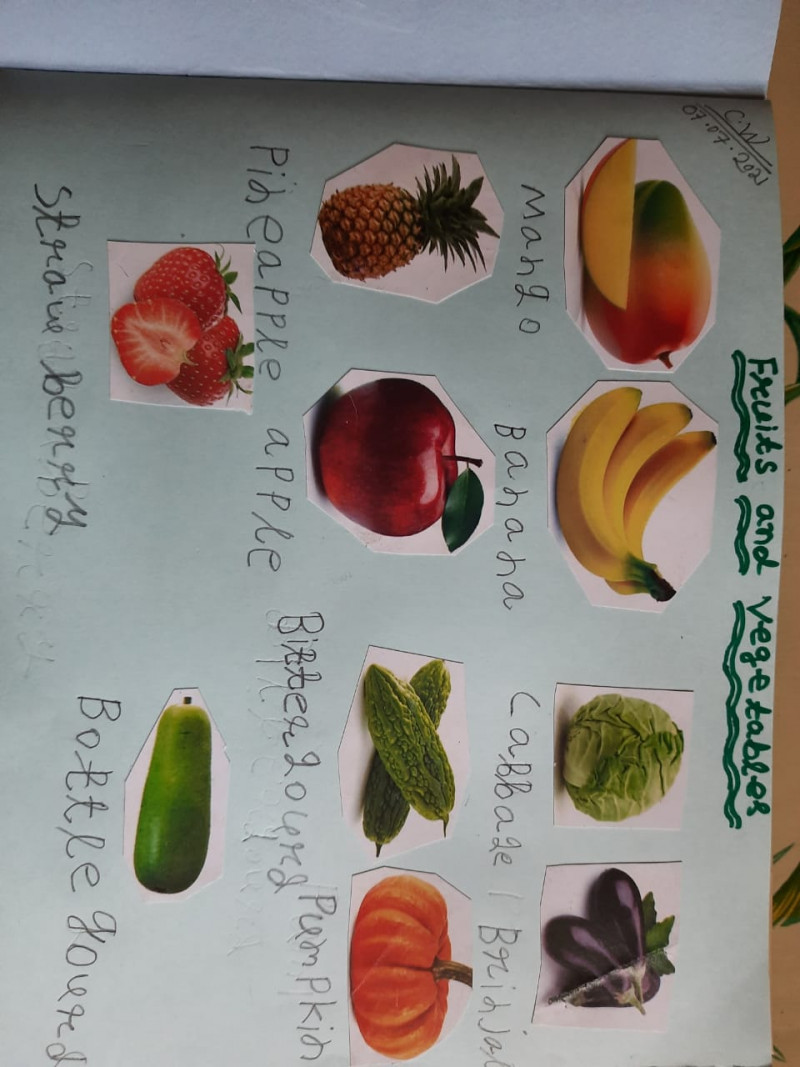 C.W
07.07.2021
Fruits and vegetables
Mango Banana Cabbage / Brinjal
Pineapple apple Bittergourd Pumpkin
Strawberry Bottle gourd